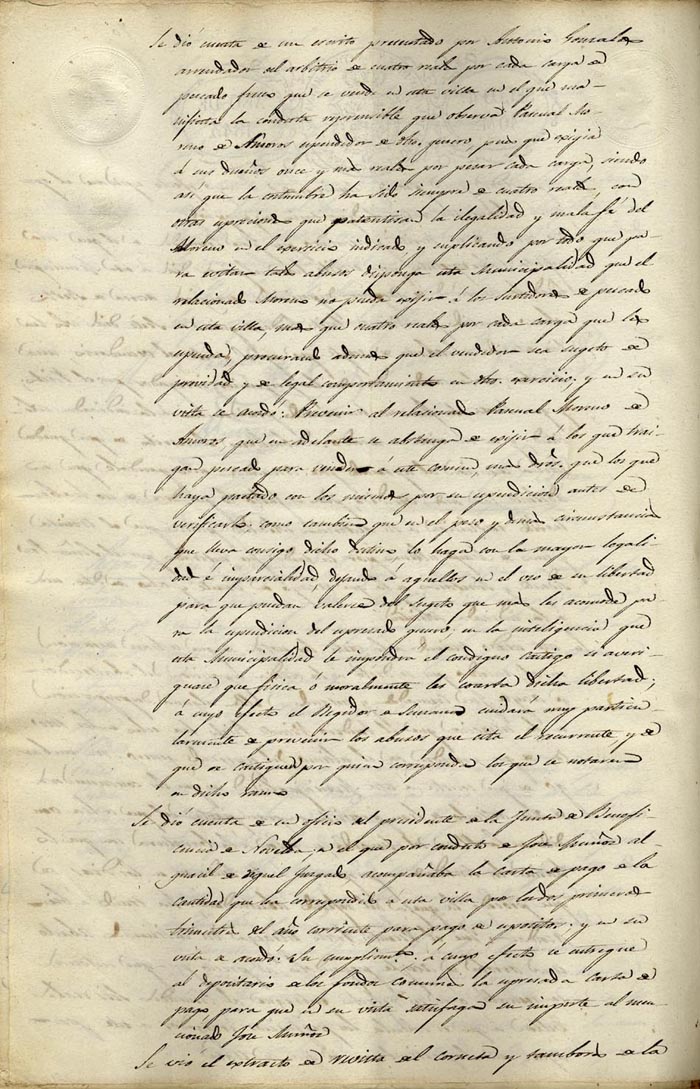 Se dió cuenta de un escrito presentado por Antonio Gonzalez
arrendador del arbitrio de cuatro reales por cada carga de
pescado fresco que se vende en esta villa en el que ma-
nifiesta la conducta reprensible que observa Pascual Mo-
reno de Amoros espendedor de dho. genero, pues que exijia
á sus dueños once y mas reales por pesar cada carga, siendo
asi que la costumbre ha sido siempre de cuatro reales, con
otras espresiones que patentizan la ilegalidad y mala fé del
Moreno en el exercicio indicado y suplicando por todo que pa-
ra evitar tales abusos disponga esta Municipalidad que el
relacionado Moreno no pueda exijir á los surtidores de pescado
en esta villa, mas que cuatro reales por cada carga que les
espenda, procurando ademas que el vendedor sea sugeto de
providad y de legal comportamiento en dho. exercicio; y en su
vista se acordó: Prevenir al relacionado Pascual Moreno de
Amoros que en adelante se abstenga de exijir á los que trai-
gan pescado para vender á este comun, mas dros. que los que
haya pactado con los mismos por su espendicion antes de
verificarlo: como tambien que en el peso y demas circunstancias
que lleva consigo dicho destino lo haga con la mayor legali-
dad é imparcialidad, dejando á aquellos en el uso de su libertad
para que puedan valerse del sugeto que mas les acomode pa-
ra la espendicion del espresado genero: en la inteligencia que
esta Municipalidad le impondrá el condigno castigo si averi-
guare que fisica ó moralmente les coarta dicha libertad;
á cuyo efecto el Regidor de Semana cuidará muy particu-
larmente de prevenir los abusos que cita el recurrente, y de
que se castiguen por quien corresponda los que se notaren
en dicho ramo
Se dió cuenta de un oficio del presidente de la Junta de Benefi-
cencia de Novelda en el que por conducto de Jose Muñoz al-
guacil de aquel Juzgado acompañaba la carta de pago de la
cantidad que ha correspondido a esta villa por los dos primeros
trimestres del año corriente para pago de espositos. y en su
vista se acordó: Su cumplimiento, á cuyo efecto se entregue
al depositario de los fondos comunes la espresada carta de
pago para que en su vista satisfaga su importe al men-
cionado Jose Muñoz
Se vió el extracto de revista del corneta y tambores de la